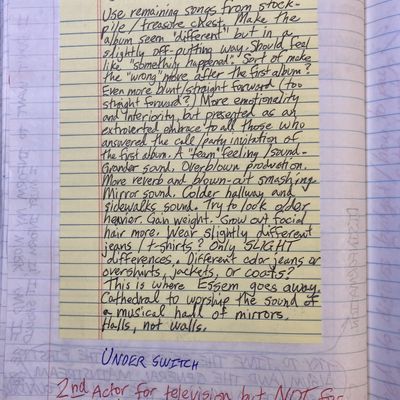 Use remaining songs from stock-
pile/treasure chest. Make the
album seem "different" but in a
slightly off-putting way. Should feel
like "something happened." Sort of make
the "wrong" move after the first album?
Even more blunt/straight forward (too
straight forward?) More emotionality
and Interiority, but presented as an
extroverted embrace to all those who
answered the call/party invitation of
the first album. A "team" feeling/sound.
Grander sound. Overblown production.
More reverb and blown-out smashing
Mirror sound. Colder hallway and
sidewalks sound. Try to look older
heavier. Gain weight. Grow out facial
hair more. Wear slightly different
jeans/t-shirts? Only SLIGHT
differences. Different color jeans or
overshirts, jackets, or coats?
This is where Essem goes away.
Cathedral to worship the sound of
a musical hall of mirrors.
Halls, not walls.
UNDER SWITCH
2nd Actor for television but NOT for